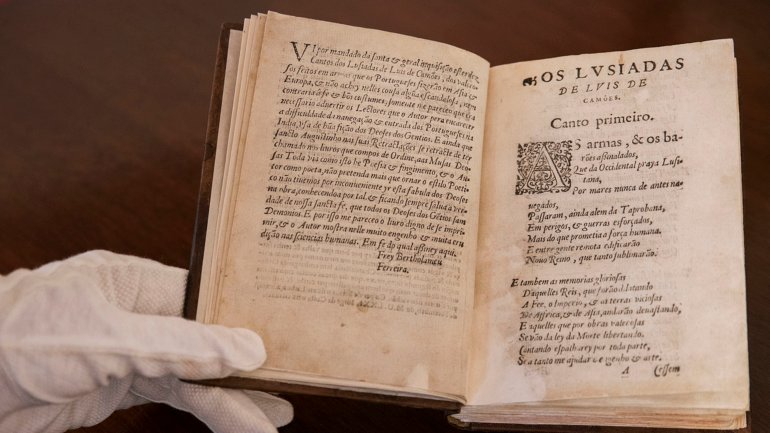 VI por mandado da santa & geral inquisição estes dez
Cantos dos Lusiadas de Luis de Camões, dos valero
sos feitos em armas que os Portugueses fizerão em Asia &
Europa, & não achey nelles cousa algũa escandalosa, nem
contraria â fe & bõs custumes, somente me pareceo que era
necessario aduertir os Lectores que o Autor pera encarecer
a difficuldade da nauegação & entrada dos Portugueses na
India, vsa de hũa fição dos Deoses dos Gentios. E ainda que
sancto Augustinho nas suas Retractações se retracte de ter
chamado nos liuros que compos de Ordine, aas Musas Deo-
sas. Toda via como isto he Poesia & fingimento, & o Au-
tor como poeta, não pretenda mais que ornar o estilo Poetico
não tiuemos por inconueniente yr esta fabula dos Deoses
na obra, conhecendoa por tal, & ficando sempre salua a ver-
dade de nossa sancta fe, que todos os Deoses dos Gẽtios sam
Demonios. E por isso me pareceo o liuro digno de se impri-
mir, & o Autor mostra nelle muito engenho & muita eru-
dição nas sciencias humanas. Em fe do qual assiney aqui.
Frey Bertholameu
Ferreira.
OS LVSIADAS
DE LVIS DE
CAMÕES.
Canto primeiro.
AS armas, & os ba-
rões assinalados,
Que da Occidental praya Lusi-
tana,
Por mares nunca de antes na-
uegados,
Passaram, ainda alem da Taprobana,
Em perigos, & guerras esforçados,
Mais do que prometia a força humana.
E entre gente remota edificarão
Nouo Reino, que tanto sublimarão.
E tambem as memorias gloriosas
Daquelles Reis, que forão dilatando
A Fee, o Imperio, & as terras viciosas
De Affrica, & de Asia, andarão deuastando,
E aquelles que por obras valerosas
Se vão da ley da Morte libertando.
Cantando espalharey por toda parte,
Se a tanto me ajudar o engenho & arte.
A Cessem